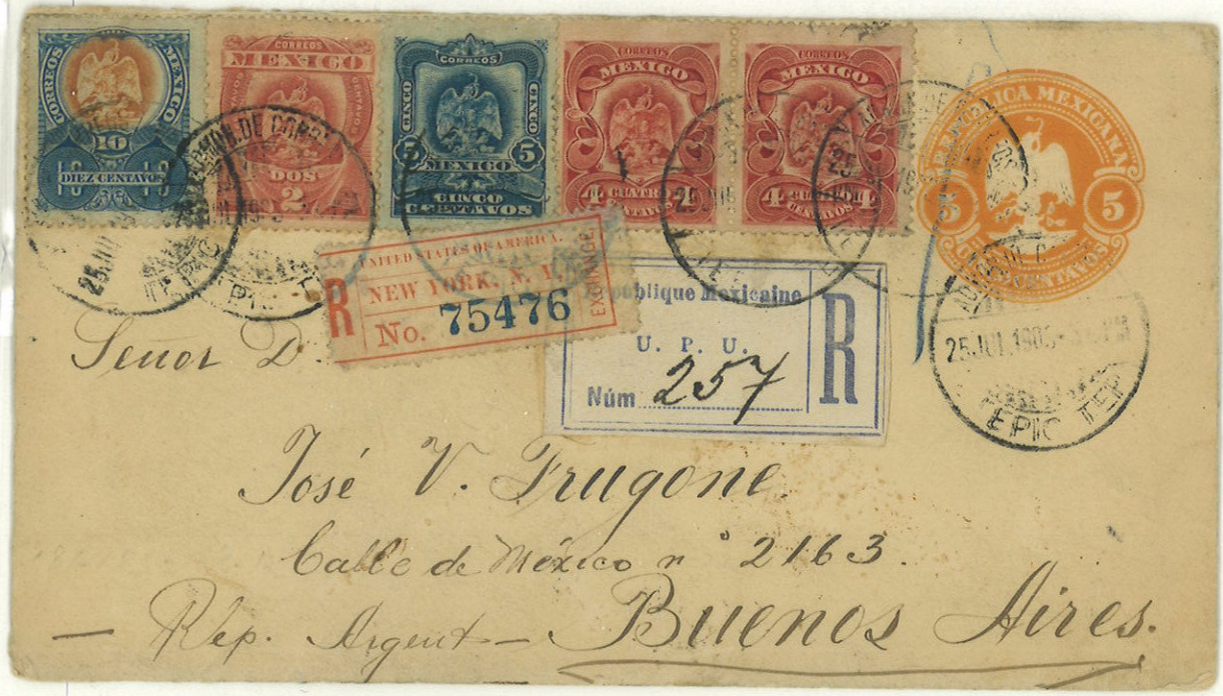 CORREOS MEXICO
10
10 10
DIEZ CENTAVOS
CORREOS
MEXICO
CENTAVOS
DOS
2
CORREOS
CINCO CINCO
5 MEXICO 5
CINCO
CENTAVOS
CORREOS
MEXICO
4 CUATRO
CENTAVOS
CORREOS
MEXICO
4 CUATRO 4
CENTAVOS
REPUBLICA MEXICANA
5 5
CENTAVOS
25 JUL
TEPIC
25 JUL
25
25 JUL 190
TEPIC TEP
UNITED STATES OF AMERICA.
R NEW YORK, N. Y. EXCHANGE
No. 75476
République Mexicaine
U. P. U. R
Núm 257
Señor D.
José V. Frugone
Calle de México nº 2163.
— Rep. Argent — Buenos Aires.